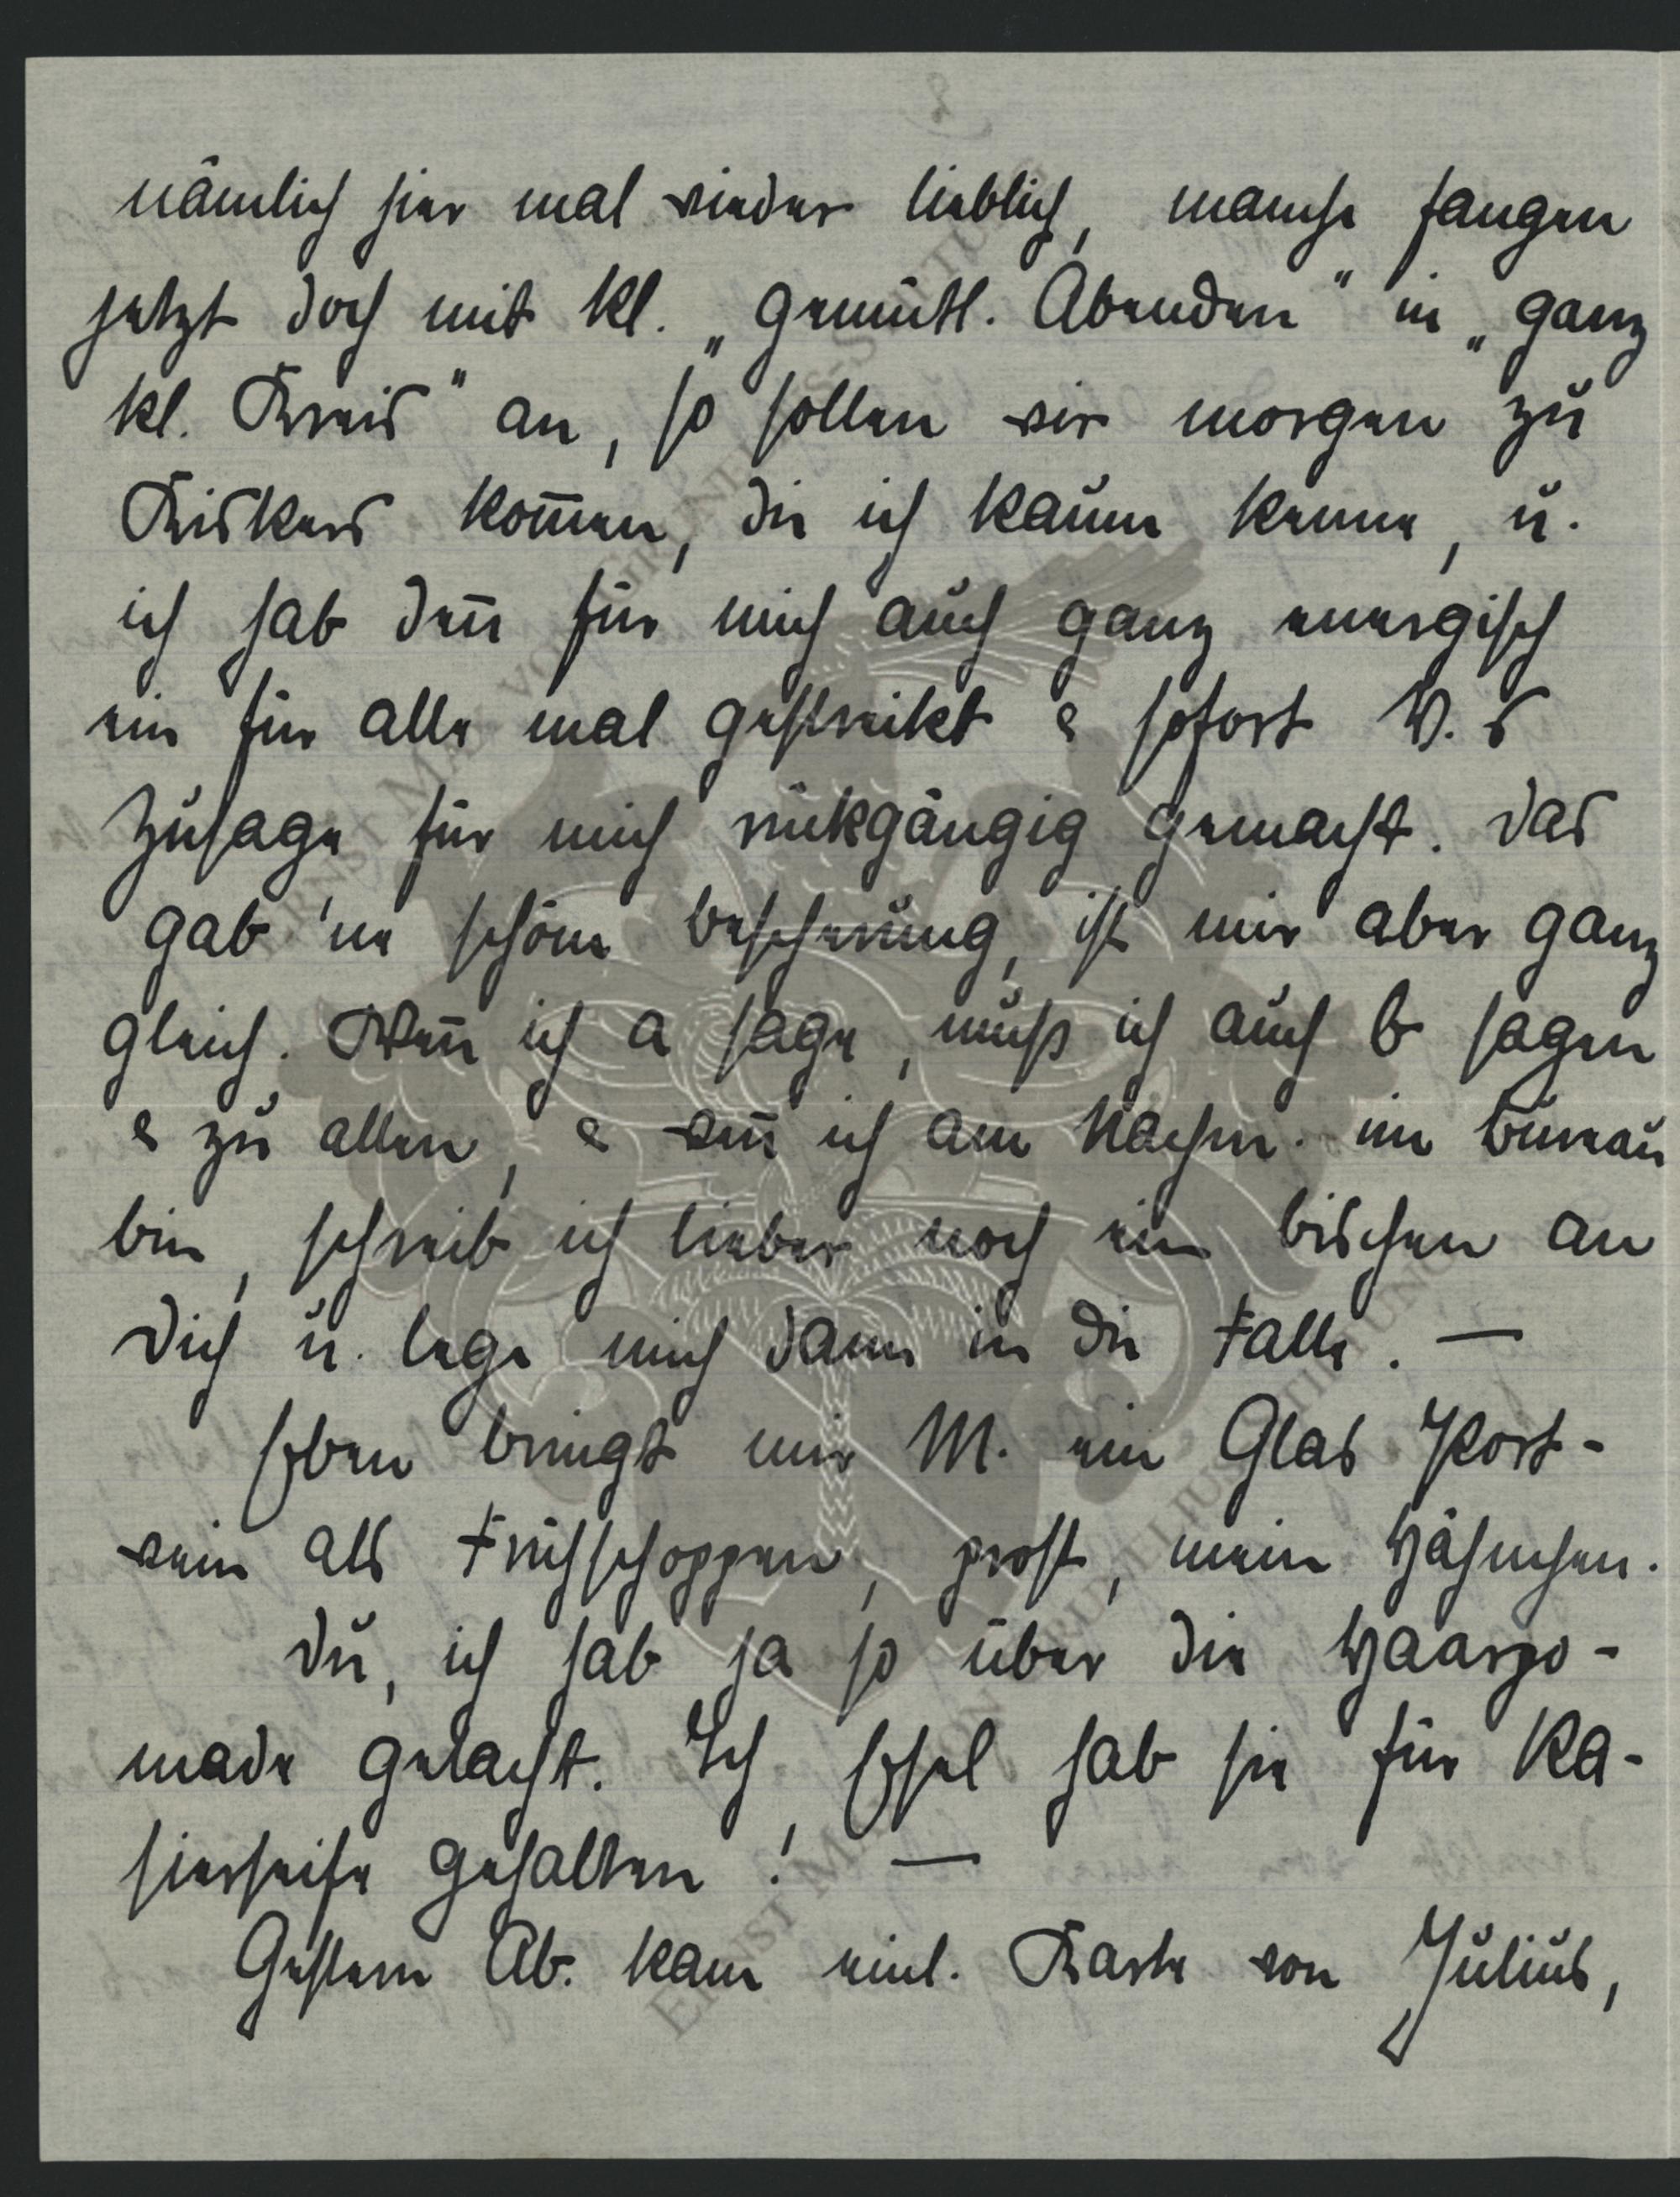 nämlich hier mal wieder lieblich, manche fangen
jetzt doch mit kl. „gemütl. Abenden" in „ganz
kl. Kreis" an, so sollen wir morgen zu
Kiskers kom̅en, die ich kaum kenne, u.
ich hab den̅ für mich auch ganz energisch
ein für alle mal gestreikt & sofort W.s
Zusage für mich rükgängig gemacht. Das
gab 'ne schöne bescherung, ist mir aber ganz
gleich. Wen̅ ich a sage, muß ich auch b sagen
& zu allen, & wen̅ ich am Nachm. im büreau
bin, schreib ich lieber noch ein bischen an
Dich u. lege mich dann in die Falle. —
Eben bringt mir M. ein Glas Port-
wein als Frühschoppen, prost, mein Hähnchen.
Du, ich hab ja so über die Haarpo-
made gelacht. Ich Esel hab sie für Ra-
sierseife gehalten! —
Gestern Ab. kam einl. Karte von Julius,
ERNST MORITZ VON